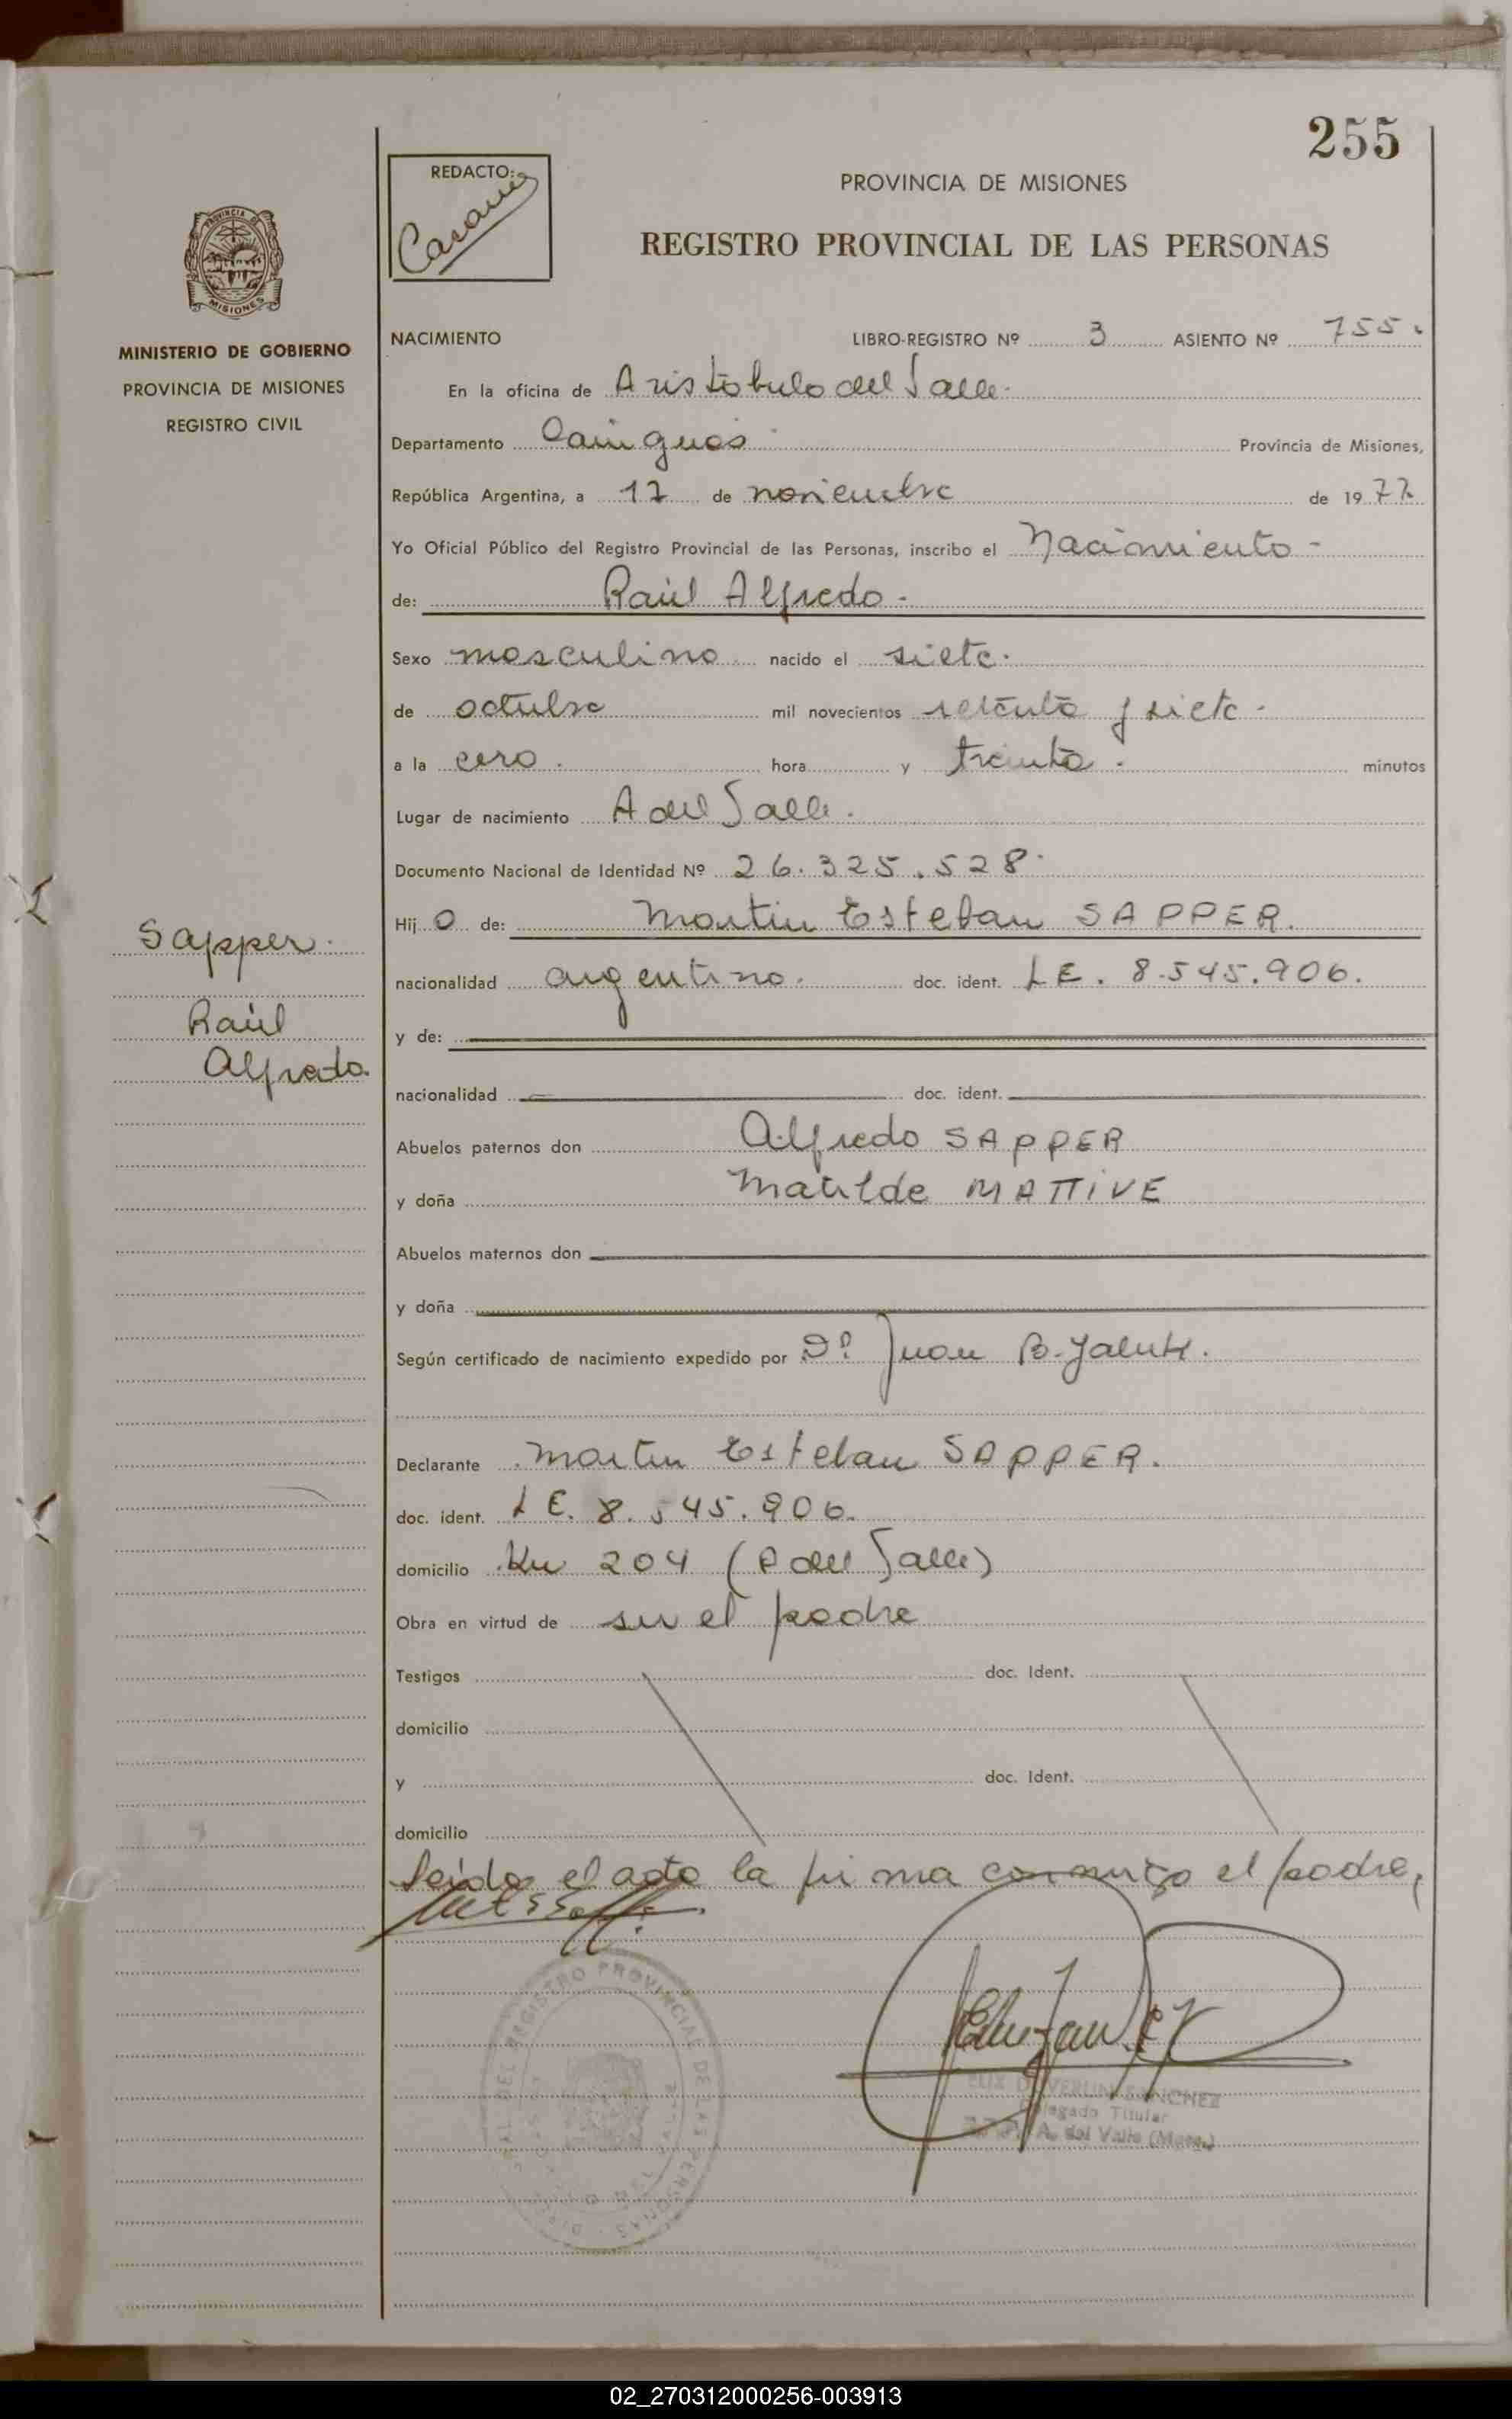 255
REDACTO:
PROVINCIA DE MISIONES
REGISTRO PROVINCIAL DE LAS PERSONAS
MISIONES
MINISTERIO DE GOBIERNO
PROVINCIA DE MISIONES
REGISTRO CIVIL
NACIMIENTO LIBRO-REGISTRO Nº 3 ASIENTO Nº 755.
En la oficina de Aristóbulo del Valle.
Departamento Cainguás Provincia de Misiones,
República Argentina, a 17 de noviembre de 1977
Yo Oficial Público del Registro Provincial de las Personas, inscribo el Nacimiento -
de: Raúl Alfredo -
Sexo masculino nacido el siete.
de octubre mil novecientos setenta y siete -
a la cero . hora y treinta . minutos
Lugar de nacimiento A del Valle .
Documento Nacional de Identidad Nº 26.325.528
Hij o de: Martin Esteban SAPPER.
nacionalidad argentino. doc. ident. LE. 8.545.906.
Sapper.
Raúl
Alfredo
y de:
nacionalidad doc. ident.
Abuelos paternos don Alfredo SAPPER
y doña Matilde MATTIVE
Abuelos maternos don
y doña
Según certificado de nacimiento expedido por Dr Juan B.
Declarante Martin Esteban SAPPER.
doc. ident. LE. 8.545.906.
domicilio Km 204 (A del Valle)
Obra en virtud de ser el padre
Testigos doc. Ident.
domicilio
y doc. Ident.
domicilio
Leida el acta la firma conmigo el padre,
SANCHEZ
Delegado Titular
A. del Valle (Mnes.)
02_270312000256-003913